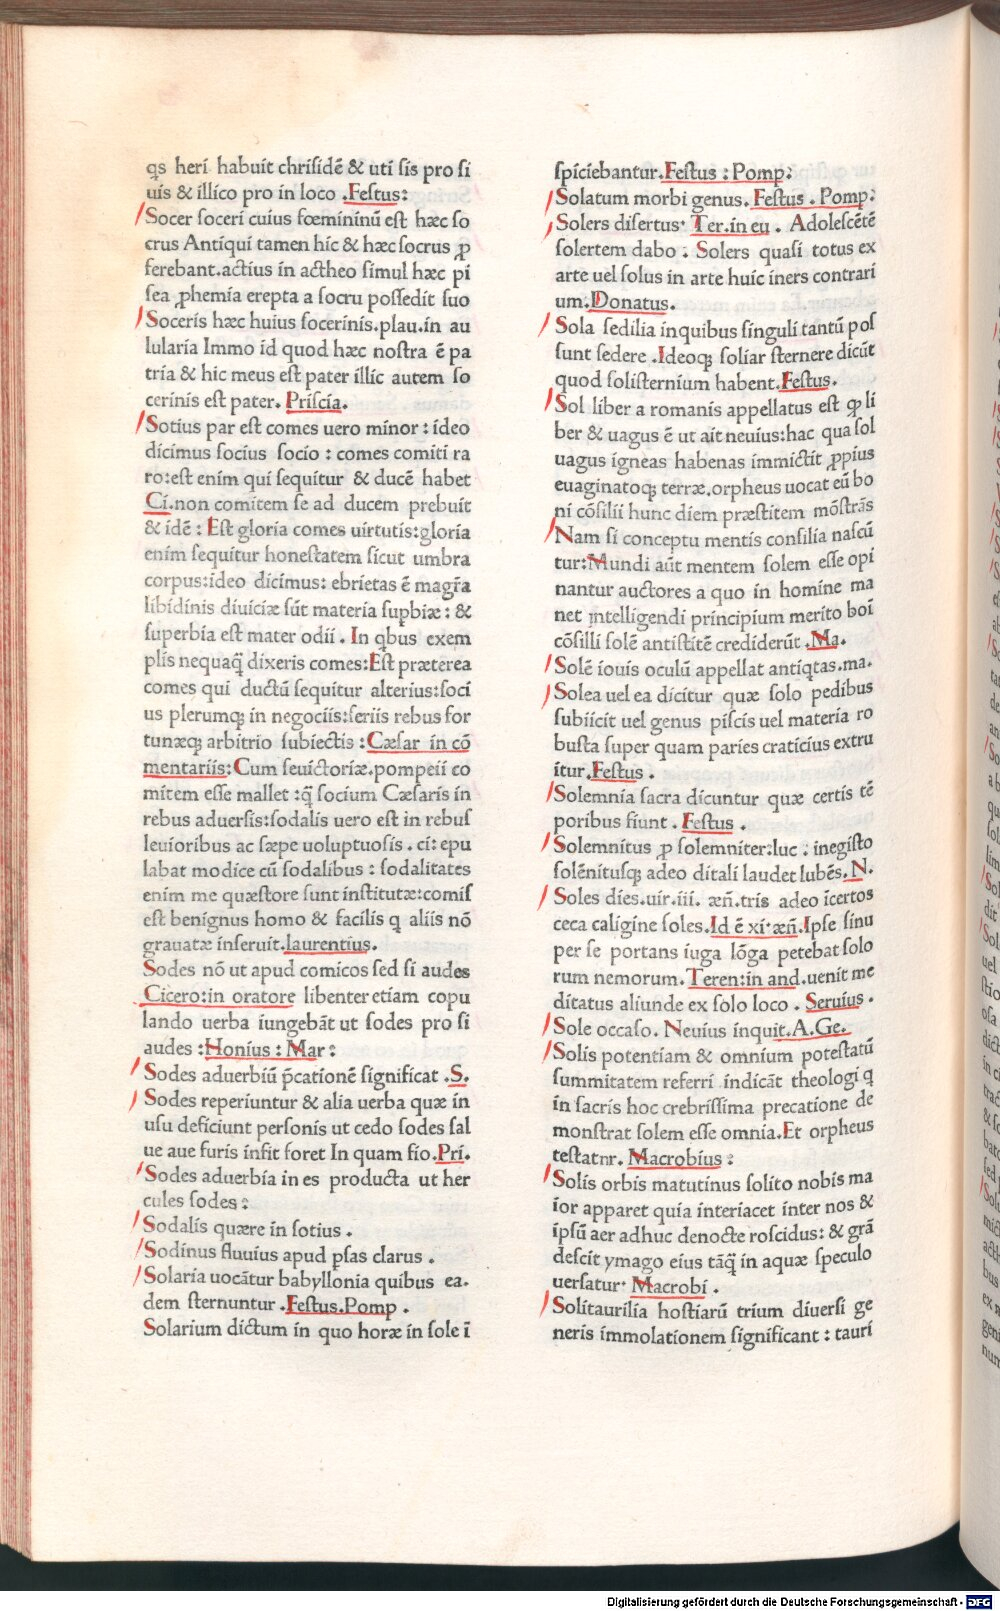 qs heri habuit chrisidē & uti sis pro si
uis & illico pro in loco .Festus:
Socer soceri cuius fœmininū est hæc so
crus Antiqui tamen hic & hæc socrus ꝓ
ferebant.actius in actheo simul hæc pi
sea ꝓhemia erepta a socru possedit suo
Soceris hæc huius socerinis.plau.in au
lularia Immo id quod hæc nostra ē pa
tria & hic meus est pater illic autem so
cerinis est pater. Priscia.
Sotius par est comes uero minor : ideo
dicimus socius socio : comes comiti ra
ro:est enim qui sequitur & ducē habet
Ci.non comitem se ad ducem prebuit
& idē : Est gloria comes uirtutis:gloria
enim sequitur honestatem sicut umbra
corpus:ideo dicimus: ebrietas ē magr̄a
libidinis diuiciæ sūt materia supbiæ : &
superbia est mater odii . In qbus exem
plis nequaq̄ dixeris comes:Est præterea
comes qui ductū sequitur alterius:soci
us plerumqꝫ in negociis:seriis rebus for
tunæqꝫ arbitrio subiectis :Cæsar in cō
mentariis:Cum seuictoriæ.pompeii co
mitem esse mallet :q̄ socium Cæsaris in
rebus aduersis:sodalis uero est in rebus
leuioribus ac sæpe uoluptuosis . ci: epu
labat modice cū sodalibus : sodalitates
enim me quæstore sunt institutæ:comis
est benignus homo & facilis q aliis nō
grauatæ inseruit.laurentius.
Sodes nō ut apud comicos sed si audes
Cicero:in oratore libenter etiam copu
lando uerba iungebāt ut sodes pro si
audes :Honius : Mar :
Sodes aduerbiū p̄cationē significat .S.
Sodes reperiuntur & alia uerba quæ in
usu deficiunt personis ut cedo sodes sal
ue aue furis infit foret In quam fio.Pri.
Sodes aduerbia in es producta ut her
cules sodes :
Sodalis quære in sotius .
Sodinus fluuius apud psas clarus .
Solaria uocātur babyllonia quibus ea.
dem sternuntur .Festus.Pomp .
Solarium dictum in quo horæ in sole ī
spiciebantur.Festus : Pomp:
Solatum morbi genus. Festus . Pomp:
Solers disertus· Ter.in eu . Adolescētē
solertem dabo . Solers quasi totus ex
arte uel solus in arte huic iners contrari
um:Donatus.
Sola sedilia in quibus singuli tantū pos
sunt sedere .Ideoqꝫ soliar sternere dicūt
quod solisternium habent.Festus.
Sol liber a romanis appellatus est ꝙ li
ber & uagus ē ut ait neuius:hac qua sol
uagus igneas habenas immictit ꝓpius
euaginatoqꝫ terræ.orpheus uocat eū bo
ni cōsilii hunc diem præstitem mōstrās
Nam si conceptu mentis consilia nascū
tur:Mundi aūt mentem solem esse opi
nantur auctores a quo in homine ma
net intelligendi principium merito boī
cōsilli solē antistitē crediderūt .Ma.
Solē iouis oculū appellat antiqtas.ma.
Solea uel ea dicitur quæ solo pedibus
subiicit uel genus piscis uel materia ro
busta super quam paries craticius extru
itur.Festus .
Solemnia sacra dicuntur quæ certis tē
poribus fiunt . Festus .
Solemnitus ꝓ solemniter:luc : inegisto
solēnitusqꝫ adeo ditali laudet lubēs.N.
Soles dies.uir.iii. æn̄.tris adeo īcertos
ceca caligine soles.Id ē xi·æn̄.Ipse sinu
per se portans iuga lōga petebat solo
rum nemorum. Teren:in and.uenit me
ditatus aliunde ex solo loco . Seruius .
Sole occaso. Neuius inquit.A.Ge.
Solis potentiam & omnium potestatū
summitatem referri indicāt theologi q
in sacris hoc crebrissima precatione de
monstrat solem esse omnia.Et orpheus
testatnr. Macrobius :
Solis orbis matutinus solito nobis ma
ior apparet quia interiacet inter nos &
ipsū aer adhuc denocte roscidus: & grā
descit ymago eius tāq̄ in aquæ speculo
uersatur· Macrobi .
Solitaurilia hostiarū trium diuersi ge
neris immolationem significant : tauri
Digitalisierung gefördert durch die Deutsche Forschungsgemeinschaft - DFG